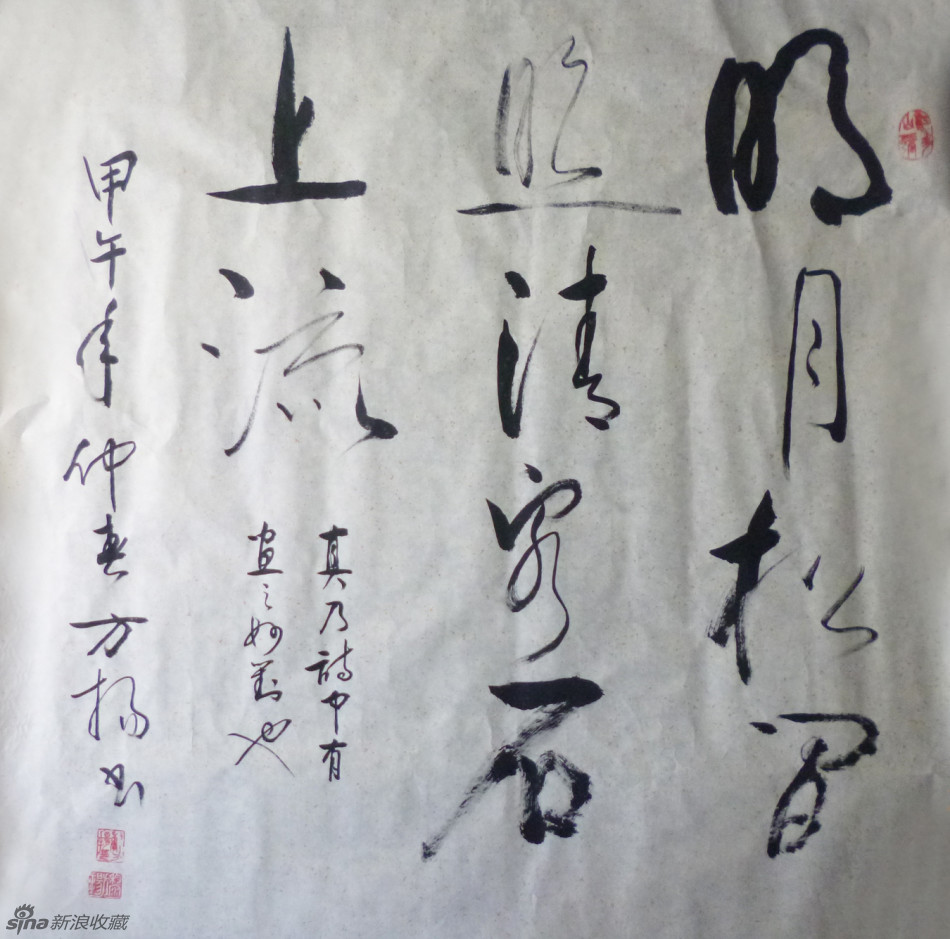 明月松间
照清泉石
上流
真乃詩中有
畫之妙對也
甲午年仲春方揚书
sina新浪收藏